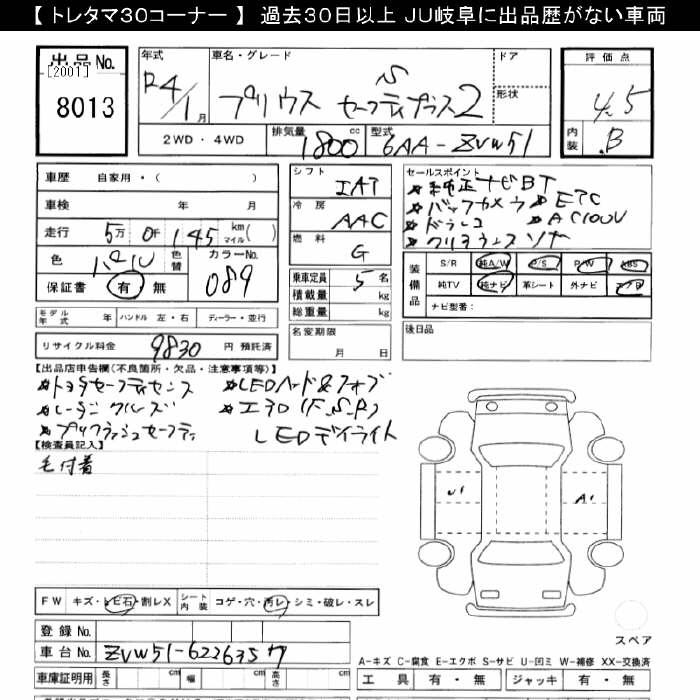 【 トレタマ30コーナー 】 過去30日以上 JU岐阜に出品歴がない車両
出品 No. 年式 車名・グレード ドア 評価点
[2001]
8013 R4/1月 プリウス S セーフティプラス2 形状 4.5
2WD・4WD 排気量 1800 cc 型式 6AA-ZVW51 内装 B
車歴 自家用・( ) シフト IAT セールスポイント
車検 年 月 冷房 AAC *純正ナビBT *ETC
走行 5万 0千 145 km マイル( ) 燃料 G *バックカメラ *AC100V
色 パール 色替 カラーNo. 089 *ドラレコ
保証書 有・無 *クリアランスソナー
乗車定員 5名 装備品 S/R 純A/W P/S P/W ABS
積載量 kg 純TV 純ナビ 革シート 外ナビ エアB
総重量 kg ナビ型番:
モデル年式 年 ハンドル 左・右 ディーラー・並行 名変期限 後日品
リサイクル料金 9830 円 預託済 月 日
【出品店申告欄(不良箇所・欠品・注意事項等)】
*トヨタセーフティセンス *LEDヘッド&フォグ
*レーダークルーズ *エアロ(F,S,R)
*プリクラッシュセーフティ LEDデイライト
【検査員記入】
毛付着
U1 A1
FW キズ・トビ石・割レX シート内装 コゲ・穴・汚レ・シミ・破レ・スレ
登録 No. スペア
車台 No. ZVW51-6226357
A-キズ C-腐食 E-エクボ S-サビ U-凹ミ W-補修 XX-交換済
車庫証明用 長さ cm 幅 cm 高さ cm 工具 有・無 ジャッキ 有・無